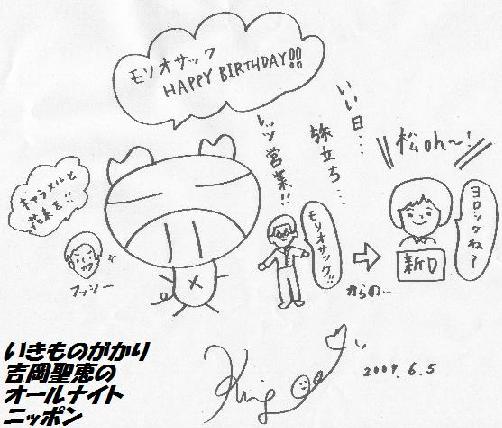 モリオサック
HAPPY BIRTHDAY!!
キャラメルと
花束を!!
フッシー
レッツ営業!!
モリオサック!!
いい日…
旅立ち…
からの…
松oh〜!
新D
ヨロックね〜
King
2009.6.5
いきものがかり
吉岡聖恵の
オールナイト
ニッポン